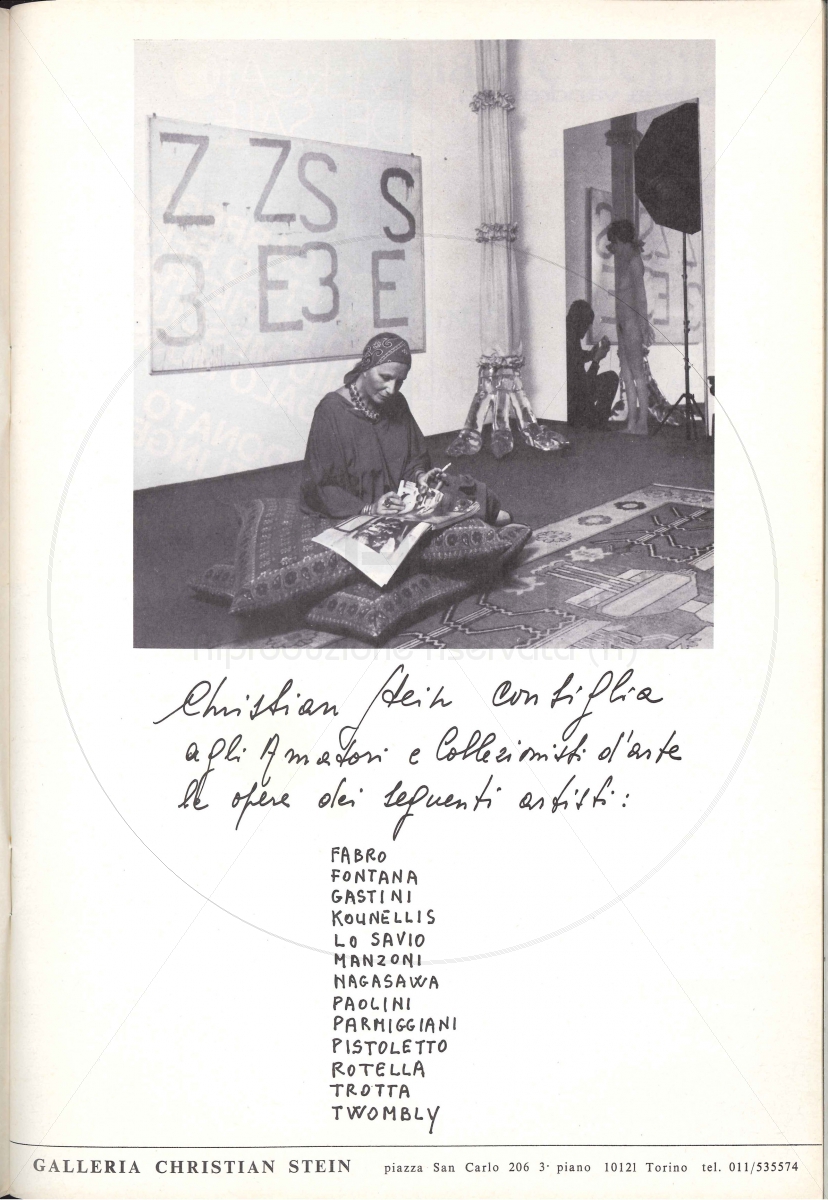 Z ZS S
3 E3 E
Riproduzione riservata (n)
Christian Stein consiglia
agli Amatori e Collezionisti d'arte
le opere dei seguenti artisti:
FABRO
FONTANA
GASTINI
KOUNELLIS
LO SAVIO
MANZONI
NAGASAWA
PAOLINI
PARMIGGIANI
PISTOLETTO
ROTELLA
TROTTA
TWOMBLY
GALLERIA CHRISTIAN STEIN piazza San Carlo 206 3° piano 10121 Torino tel. 011/535574